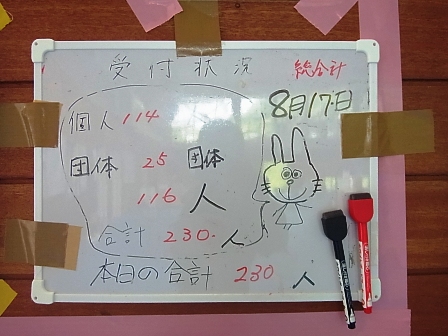 受付状況 総合計
8月17日
個人 114
団体 25 団体
116 人
合計 230 人
本日の合計 230 人